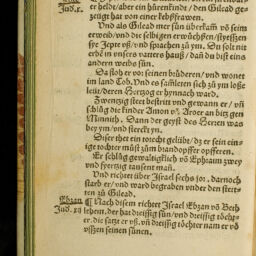 Jud.x.
er helde/aber ein hůrenkindt/ den Gilead ge-
zeügt hat von einer kebsfrawen.
Und als Gilead mer sün überkam võ seim
weib/vnd die selbigen erwůchßen/styessen
sye Jepte vß/ vnd sprachen zů ym. Du solt nit
erbē in vnsers vatters hauß/ dañ du bist eins
andern weibs sün.
Da floh er võ seinen brüderen/ vnd wonet
im land Tob. Und es samleten sich zů ym loße
leüt/deren Hertzog er hynnach ward.
Zwenzig stett bestritt vnd gewann er / vñ
schlůg die kinder Amon võ Aroer an biz gen
Minnith. Dann der geyst des Herren was
bey ym/ vnd sterckt yn.
Diser thet ein torecht gelübt/ dz er sein ein-
ige tochter můst zům brandopffer opfferen.
Er schlůg gewaltiglich võ Ephraim zwey
vnd fyertzig tausent mann.
Und richtet über Israel sechs jor. darnoch
starb er/ vnd ward begraben vnder den stett-
en zů Gilead.
Ebzan
Jud. xij
¶ Nach disem richtet Israel Ebzan võ Beth
lehem. der hat dreissig sün/vnd dreissig töcht-
er. die satzt er vß. vñ dreissig töchter nam er võ
vssen seinen sünen.